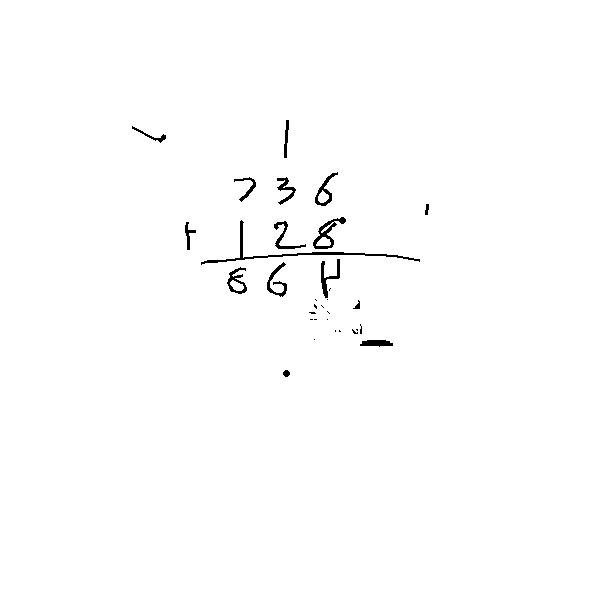 1
736
+ 128
864